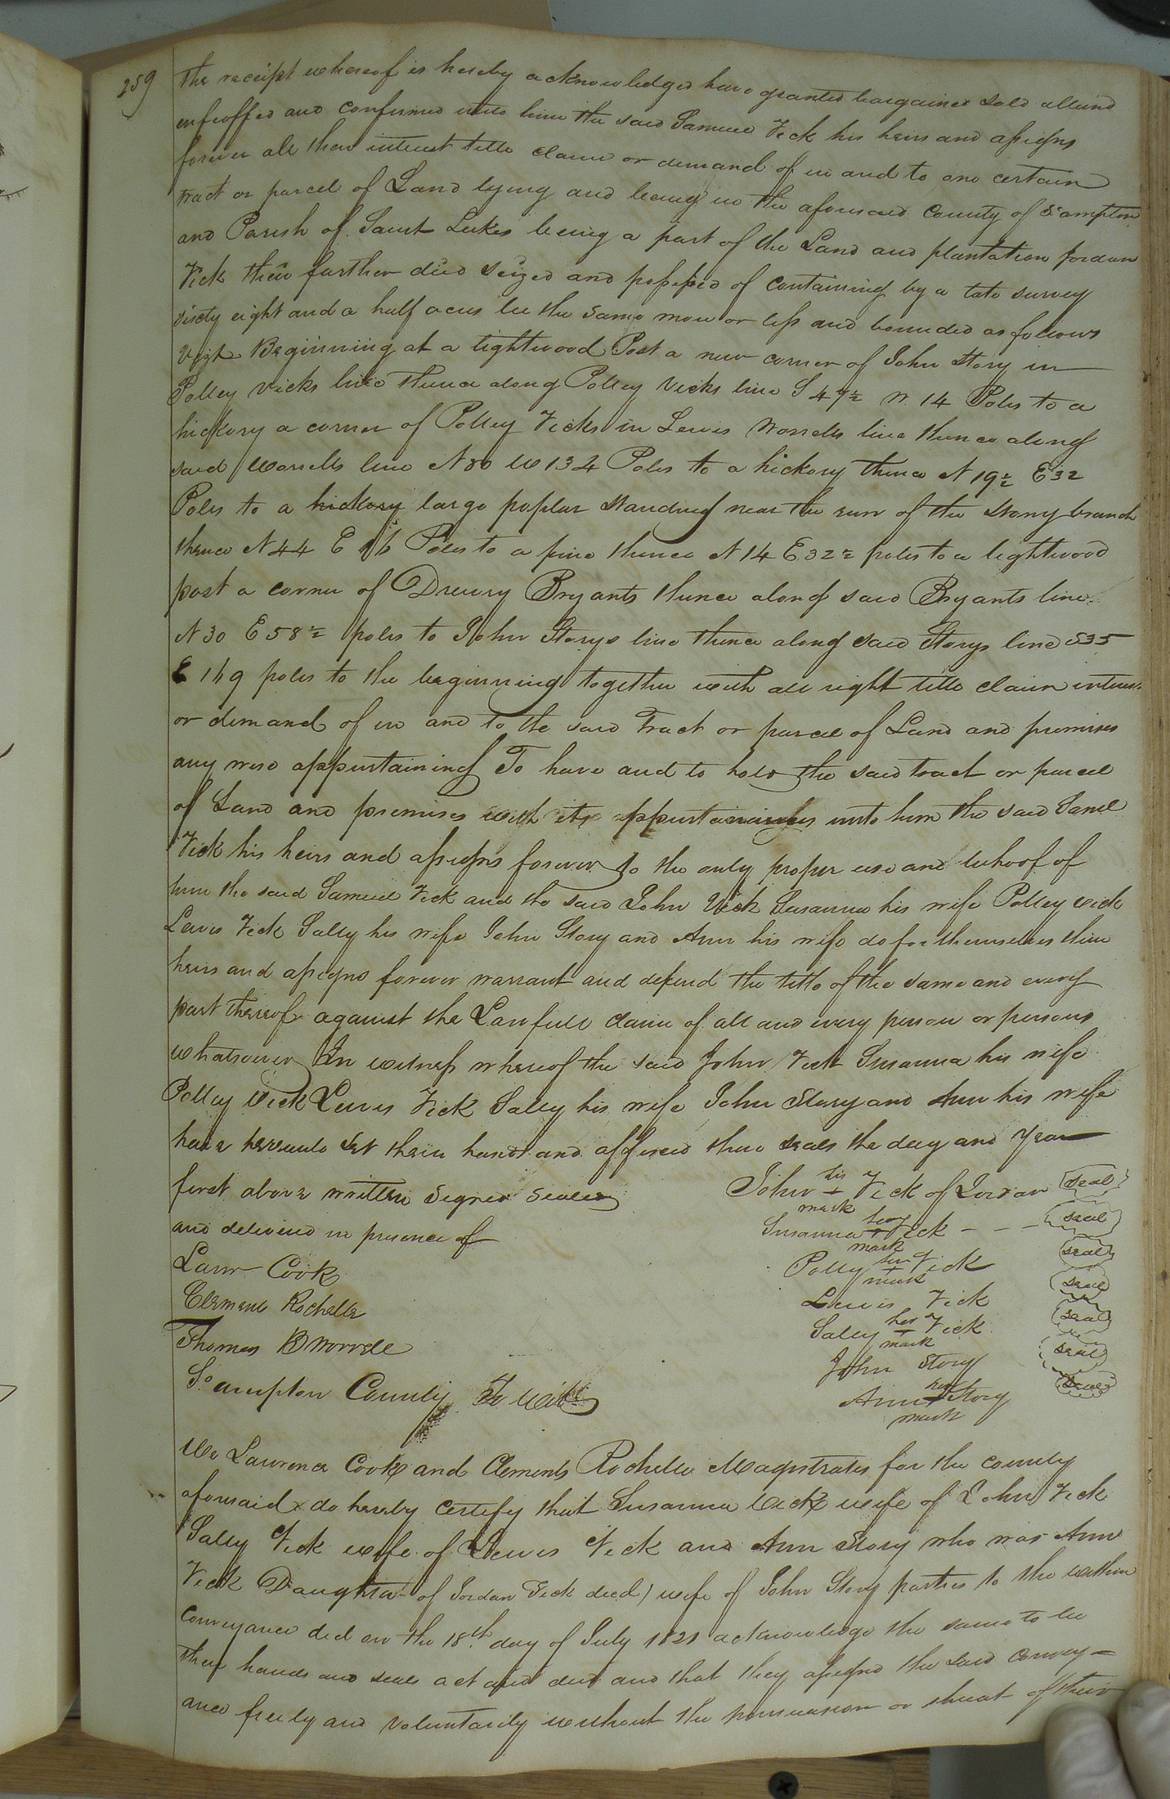 259
the receipt whereof is hereby acknowledged have granted bargained sold aliend
enfeoffed and confirmed unto him the said Samuel Vick his heirs and assigns
forever all their interest title claim or demand of in and to one certain
tract or parcel of Land lying and being in the aforesaid County of S'ampton
and Parish of Saint Lukes being a part of the Land and plantation Jordan
Vick their farther died seized and possessed of containing by a late survey
sixty eight and a half acres be the same more or less and bounded as follows
Vizt Beginning at a lightwood Post a new corner of John Story in
Polley Vicks line thence along Polley Vicks line S 47½ W. 14 Poles to a
hickory a corner of Polley Vicks in Lewis Worrells line thence along
said Worrells line N 80 W 134 Poles to a hickory thence N 19½ E 32
Poles to a hickory large poplar standing near the run of the Stony branch
thence N 44 E 16 Poles to a pine thence N 14 E 32½ poles to a lightwood
post a corner of Drewry Bryants thence along said Bryants line
N 30 E 58½ poles to John Storys line thence along said Storys line S 35
E 149 poles to the beginning together with all right title claim interest
or demand of in and to the said Tract or parcel of Land and premises
any wise appurtaining To have and to hold the said tract or parcel
of Land and premises with its appurtainances unto him the said Saml
Vick his heirs and assigns forever to the only proper use and behoof of
him the said Samuel Vick and the said John Vick Susanna his wife Polley Vick
Lewis Vick Salley his wife John Story and Ann his wife do for themselves their
heirs and assigns forever warrant and defend the title of the same and every
part thereof against the Lawfull claim of all and every person or persons
whatsoever In witness whereof the said John Vick Susanna his wife
Polley Vick Lewis Vick Salley his wife John Story and Ann his wife
have hereunto set their hands and affixed their seals the day and Year
first above written Signed Sealed
and delivered in presence of
Lawr Cook
Clements Rochelle
Thomas B Worrell
John his + mark Vick of Jordan seal
Susanna her + mark Vick - - - seal
Polly her + mark Vick seal
Lewis Vick seal
Salley her + mark Vick seal
John Story seal
Ann her + mark Story seal
S'ampton County To Wit
We Lawrence Cook and Clements Rochelle Magistrates for the county
aforesaid do hereby certify that Susanna Vick wife of John Vick
Salley Vick wife of Lewis Vick and Ann Story who was Ann
Vick Daughter of Jordan Vick decd) wife of John Story parties to the within
Conveyance did on the 18th day of July 1821 acknowledge the same to be
their hands and seals act and deed and that they assigned the said convey=
ance freely and voluntarily without the persuasion or threat of their